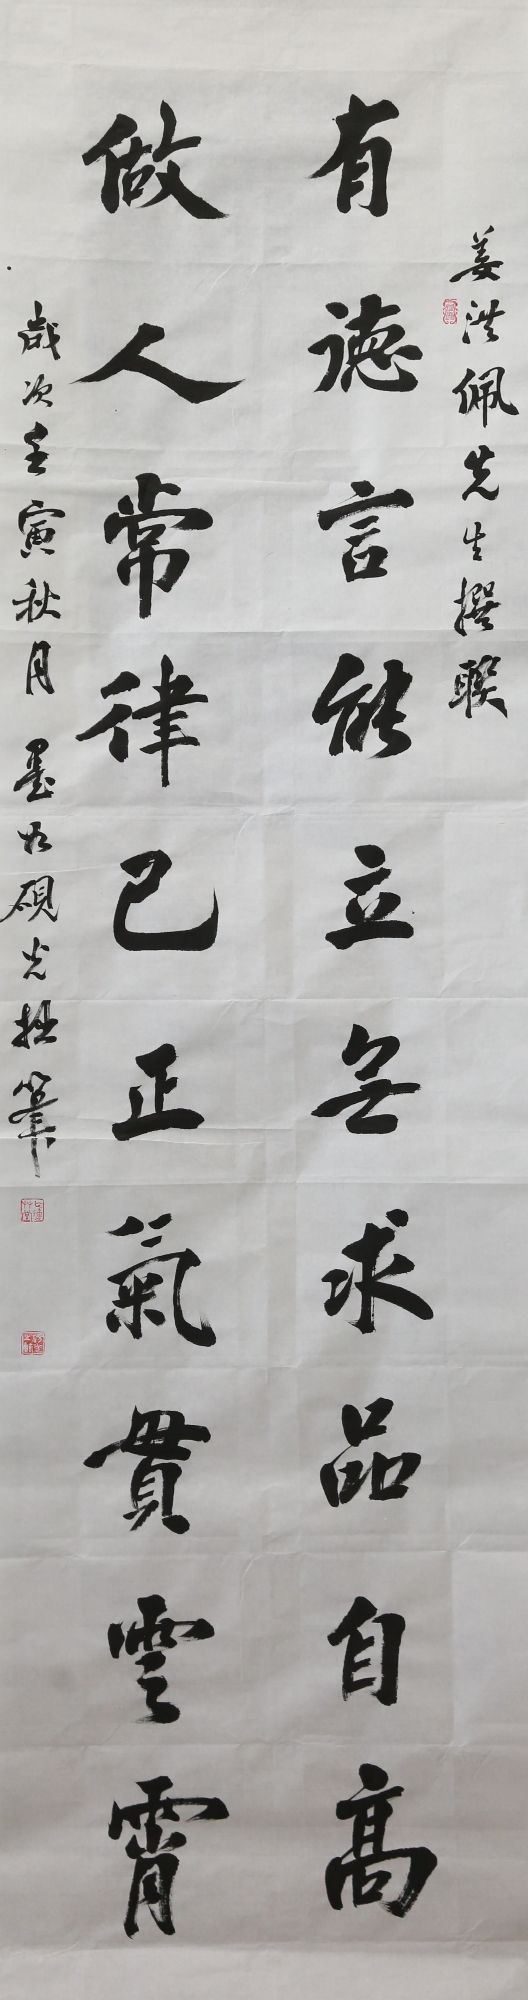 姜洪佩先生撰联
有德言能立無求品自高
做人常律己正氣貫雲霄
歲次壬寅秋月 墨如硯光拙筆